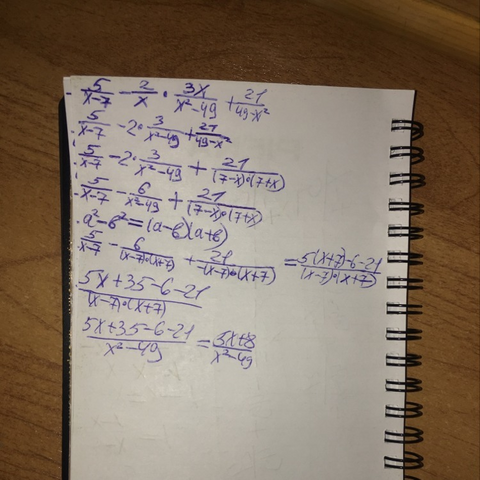 5/(x-7) - 2/x · 3x/(x²-49) + 21/(49-x²)
5/(x-7) - 2 · 3/(x²-49) + 21/(49-x²)
5/(x-7) - 2 · 3/(x²-49) + 21/((7-x)·(7+x))
5/(x-7) - 6/(x²-49) + 21/((7-x)·(7+x))
a²-b²=(a-b)(a+b)
5/(x-7) - 6/((x-7)·(x+7)) + 21/(-(x-7)·(x+7)) = (5(x+7)-6-21)/((x-7)·(x+7))
(5x+35-6-21)/((x-7)·(x+7))
(5x+35-6-21)/(x²-49) = (5x+8)/(x²-49)